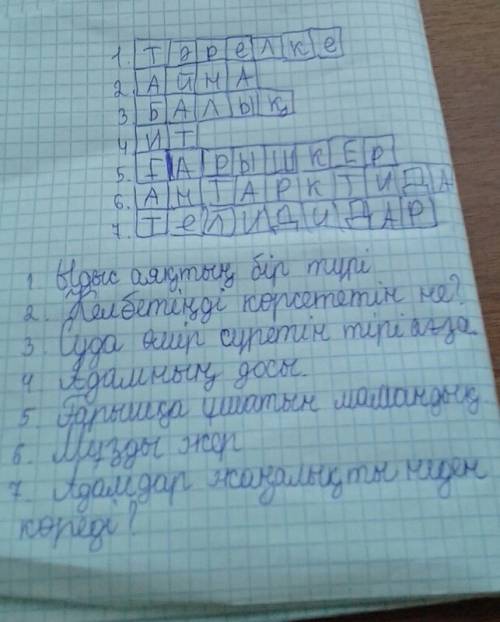 1. Тәрелке
2. АЙНА
3 БАЛЫҚ
4 ИТ
5. ҒАРЫШКЕР
6. АНТАРКТИДА
7. ТелИДИДАР
1 Ыдыс аяқтың бір түрі
2. Келбетіңді көрсететін не?
3 Суда өмір сүретін тірі ағза
4 Адамның досы.
5 Ғарышқа ұшатын мамандық
6. Мұзды жер
7. Адамдар жаңалықты неден
көреді?